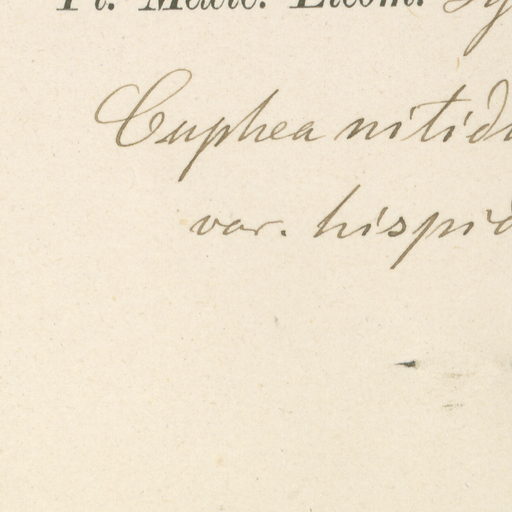 Pl. Mexic. Liebm.
Cuphea nitid
var. hispid